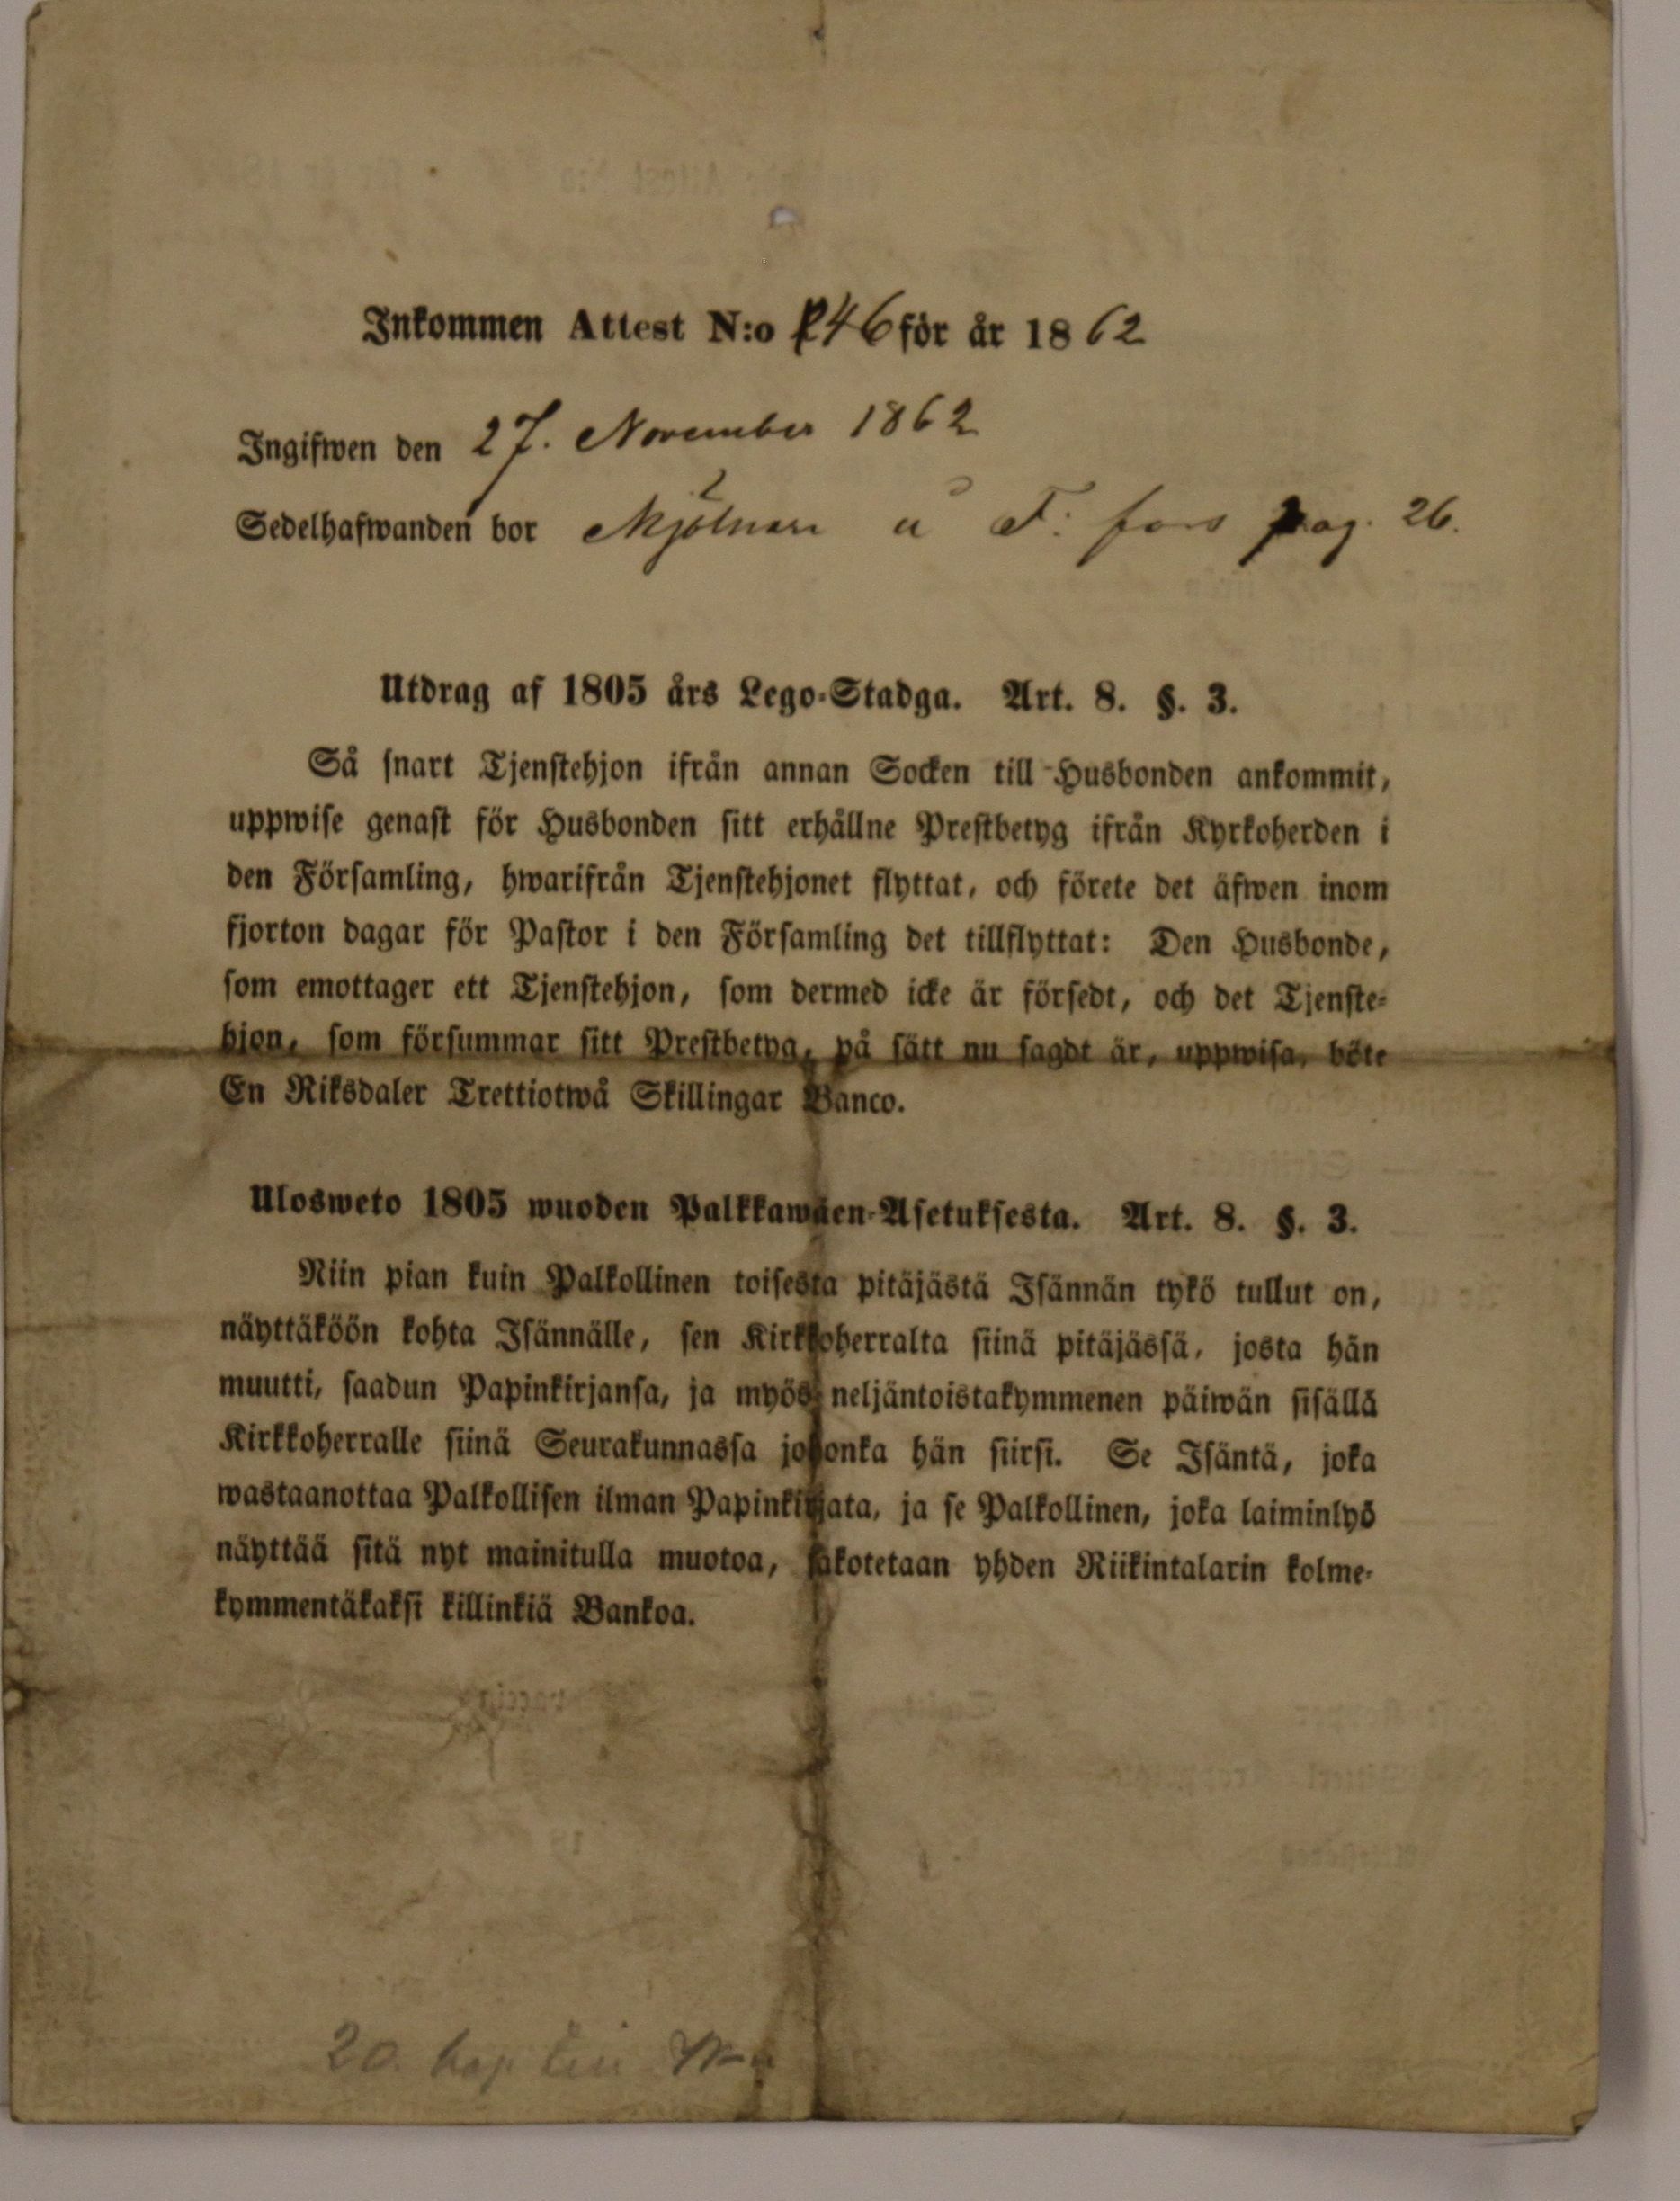 Inkommen Attest N:o 246 för år 1862
Ingifwen den 27. November 1862
Sedelhafwanden bor Mjölnare å F. fors pag. 26.
Utdrag af 1805 års Lego-Stadga. Art. 8. §. 3.
Så snart Tjenstehjon ifrån annan Socken till Husbonden ankommit,
uppwise genast för Husbonden sitt erhållne Prestbetyg ifrån Kyrkoherden i
den Församling, hwarifrån Tjenstehjonet flyttat, och förete det äfwen inom
fjorton dagar för Pastor i den Församling det tillflyttat: Den Husbonde,
som emottager ett Tjenstehjon, som dermed icke är försedt, och det Tjenste-
hjon, som försummar sitt Prestbetyg, på sätt nu sagdt är, uppwisa, böte
En Riksdaler Trettiotwå Skillingar Banco.
Ulosweto 1805 wuoden Palkkawäen-Asetuksesta. Art. 8. §. 3.
Niin pian kuin Palkollinen toisesta pitäjästä Isännän tykö tullut on,
näyttäköön kohta Isännälle, sen Kirkkoherralta siinä pitäjässä, josta hän
muutti, saadun Papinkirjansa, ja myös neljäntoistakymmenen päiwän sisällä
Kirkkoherralle siinä Seurakunnassa johonka hän siirsi. Se Isäntä, joka
wastaanottaa Palkollisen ilman Papinkirjata, ja se Palkollinen, joka laiminlyö
näyttää sitä nyt mainitulla muotoa, sakotetaan yhden Riikintalarin kolme-
kymmentäkaksi killinkiä Bankoa.
20.